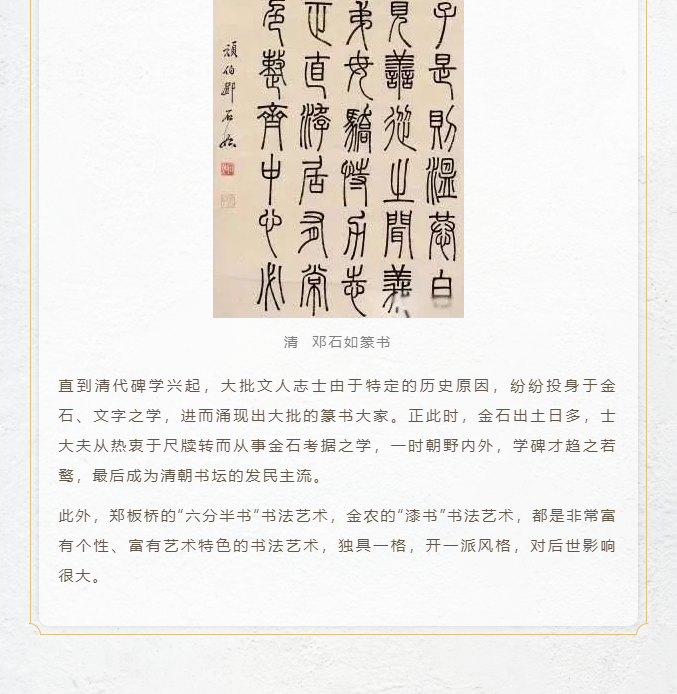 子是則溫恭自
見善從之聞義
弟毋驕恃力志
正直游居有常
色整齊中心必
頑伯鄧石如
清 邓石如篆书
直到清代碑学兴起，大批文人志士由于特定的历史原因，纷纷投身于金
石、文字之学，进而涌现出大批的篆书大家。正此时，金石出土日多，士
大夫从热衷于尺牍转而从事金石考据之学，一时朝野内外，学碑才趋之若
鹜，最后成为清朝书坛的发民主流。
此外，郑板桥的“六分半书“书法艺术，金农的“漆书”书法艺术，都是非常富
有个性、富有艺术特色的书法艺术，独具一格，开一派风格，对后世影响
很大。